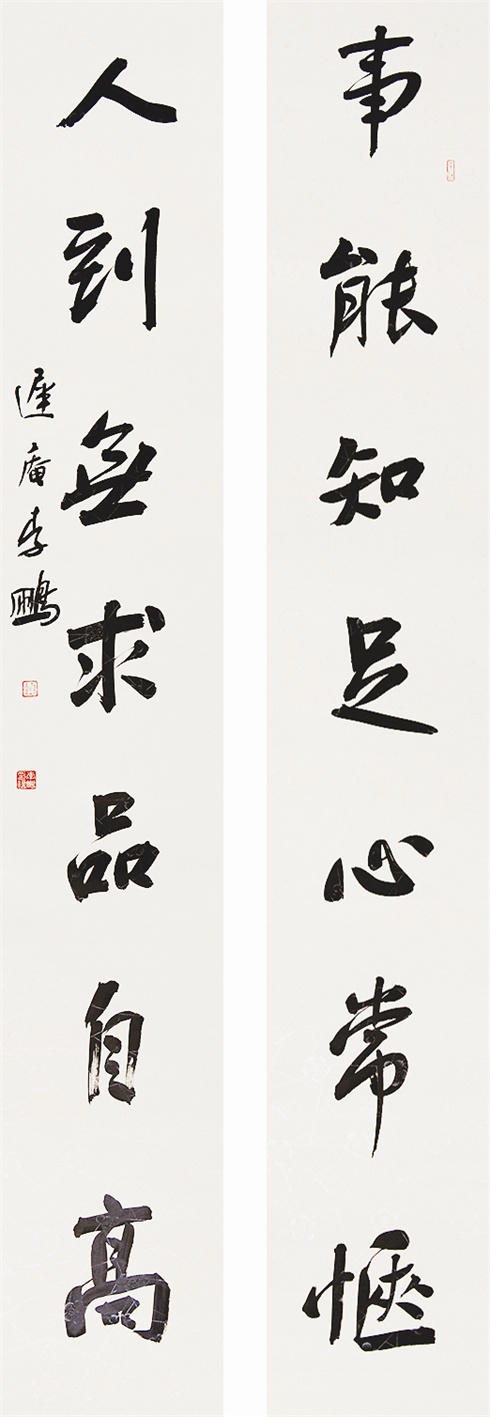 事能知足心常惬
人到無求品自高
遲庵李鵬